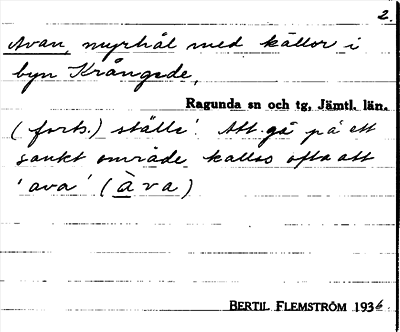 2.
Avan, myrhål med källor i
byn Krångede,
Ragunda sn och tg, Jämtl. län.
(forts.) ställe. Att gå på ett
sankt område kallas ofta att
'ava' (àva)
BERTIL FLEMSTRÖM 1936